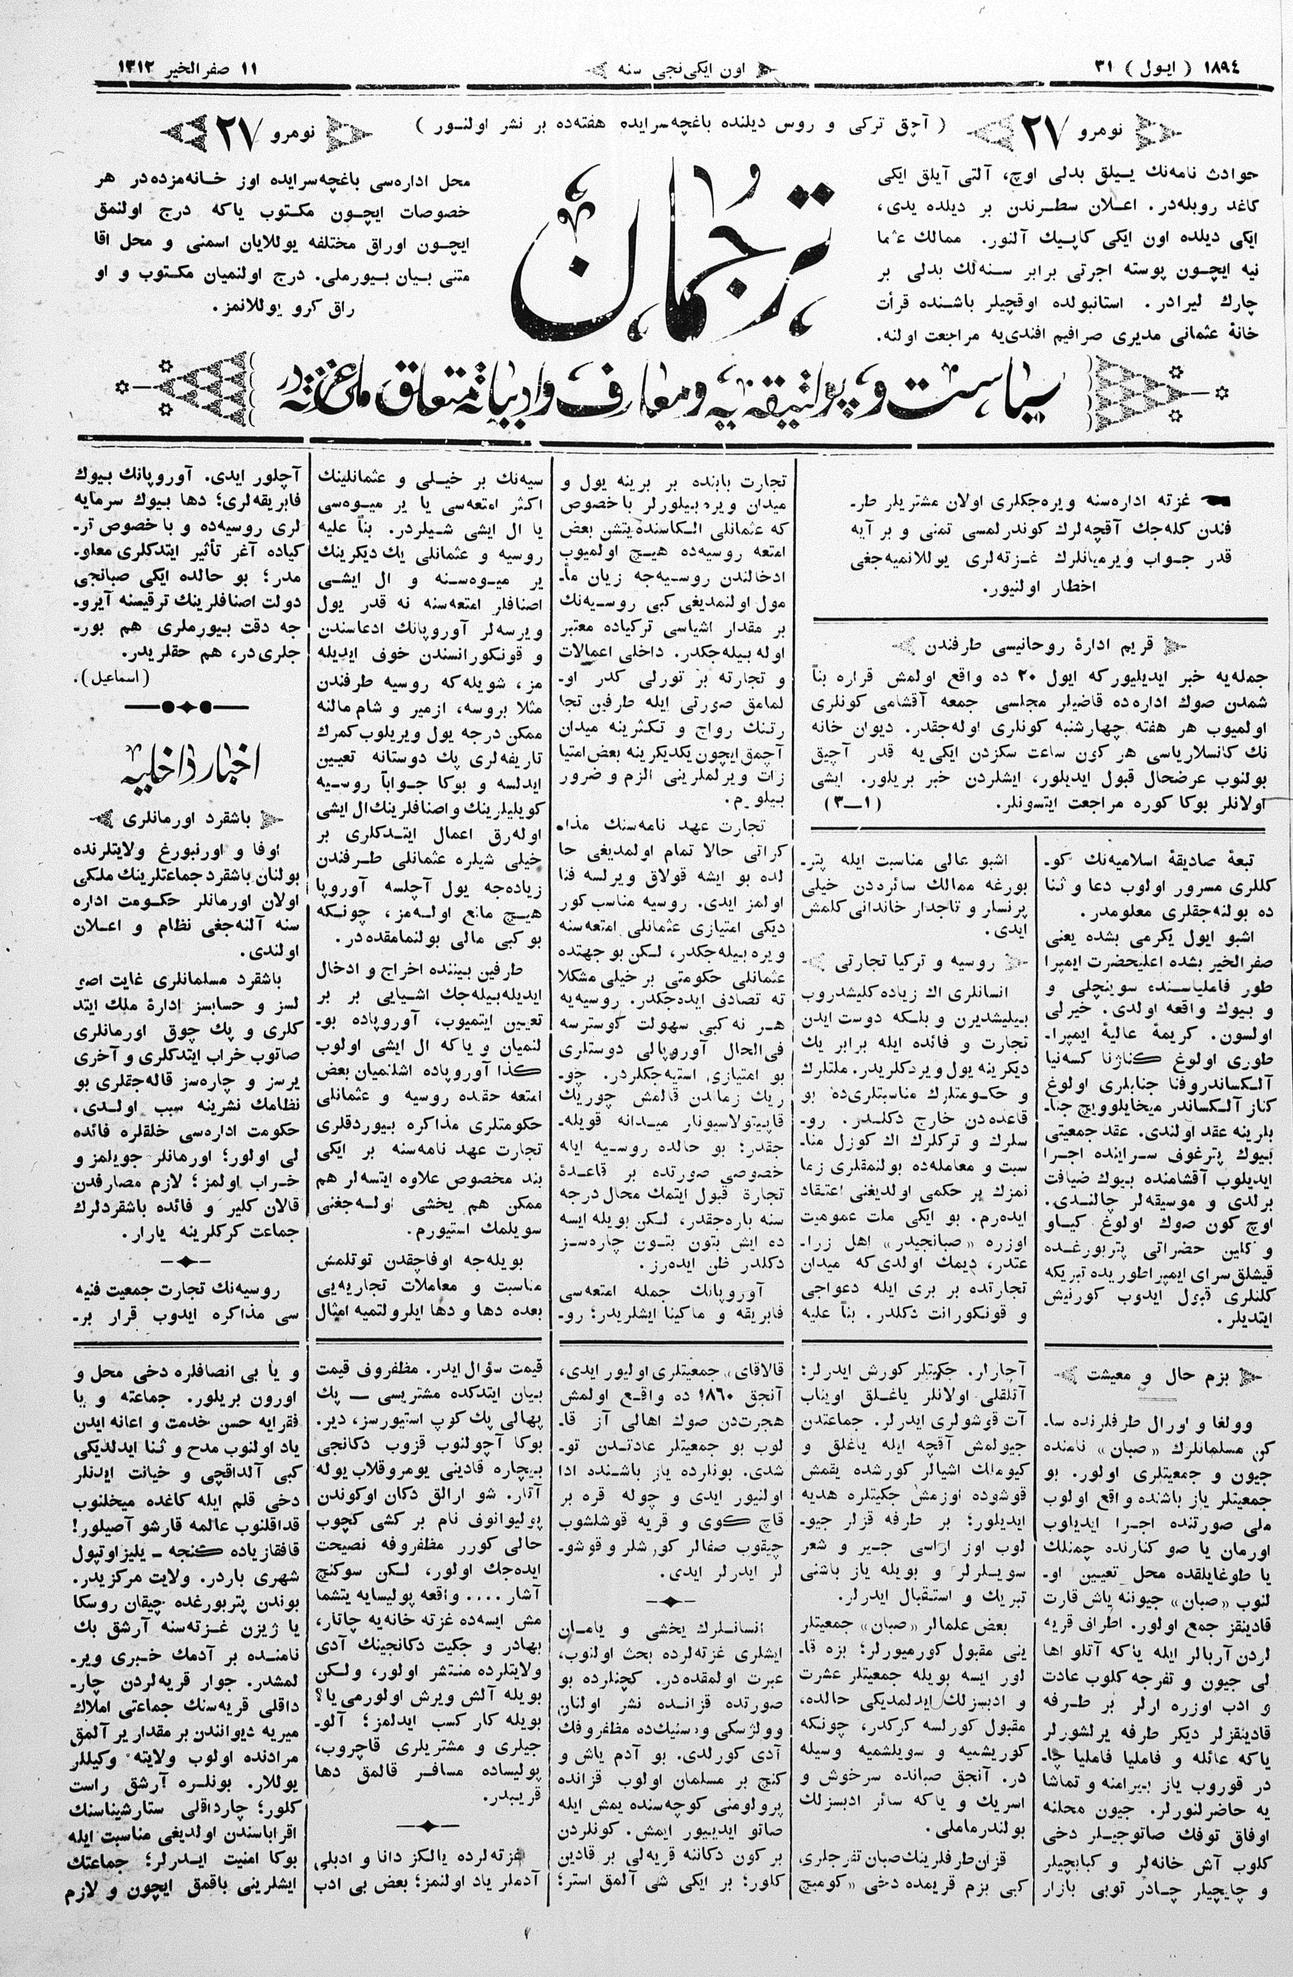 ١٨٩٤ ( ایول ) ٣١
اون ایكی نجی سنه
١١ صفر الخیر ١٣١٢
نومرو ٢٧
( آچق تركی و روس دیلنده باغچه سرایده هفته‌ده بر نشر اولنور )
نومرو ٢٧
حوادث نامه‌نك ییلق بدلی اوچ، آلتی آیلق ایكی
كاغد روبله‌در. اعلان سطرندن بر دیلده یدی،
ایكی دیلده اون ایكی كاپیك آلنور. ممالك عثما
نیه ایچون پوسته اجرتی برابر سنه‌لك بدلی بر
چارك لیرادر. استانبولده اوقچیلر باشنده قرأت
خانۀ عثمانی مدیری صرافیم افندی‌یه مراجعت اولنه.
ترجمان
محل اداره‌سی باغچه سرایده اوز خانه‌مزده‌در هر
خصوصات ایچون مكتوب یاكه درج اولنمق
ایچون اوراق مختلفه یوللایان اسمنی و محل اقا
متنی بیان بیورملی. درج اولنمیان مكتوب و او
راق كرو یوللانمز.
سیاست و پولتیقه‌یه و معارف و ادبیاته متعلق ملی غزته‌در
غزته اداره‌سنه ویره‌جكلری اولان مشتریلر طر-
فندن كله‌جك آقچه‌لرك كوندرلمسی تمنی و بر آیه
قدر جواب ویرمیانلرك غزته‌لری یوللانمیه‌جغی
اخطار اولنیور.
قریم ادارۀ روحانیسی طرفندن
جمله‌یه خبر ایدیلیور كه ایول ٢٠ ده واقع اولمش قراره بناً
شمدن صوك اداره‌ده قاضیلر مجلسی جمعه آقشامی كونلری
اولمیوب هر هفته چهارشنبه كونلری اوله‌جقدر. دیوان خانه
نك كانسلاریاسی هر كون ساعت سكزدن ایكی‌یه قدر آچیق
بولنوب عرضحال قبول ایدیلور، ایشلردن خبر بریلور. ایشی
اولانلر بوكا كوره مراجعت ایتسونلر. (١—٣)
تبعۀ صادیقۀ اسلامیه‌نك كو-
كللری مسرور اولوب دعا و ثنا
ده بولنه‌جقلری معلومدر.
اشبو ایول یكرمی بشده یعنی
صفر الخیر بشده اعلیحضرت ایمپرا
طور فامیلیاسنده سوینچلی و
و بیوك واقعه اولدی. خیرلی
اولسون. كریمۀ عالیۀ ایمپرا-
طوری اولوغ كناژنا كسه‌نیا
آلكساندروفنا جنابلری اولوغ
كناز آلكساندر میخایلوویچ جنا-
بلرینه عقد اولندی. عقد جمعیتی
بیوك پترغوف سراینده اجرا
ایدیلوب آقشامنده بیوك ضیافت
برلدی و موسیقه‌لر چالندی.
اوچ كون صوك اولوغ كیاو
و كلین حضراتی پتربورغده
قیشلق سرای ایمپراطوریده تبریكه
كلنلری قبول ایدوب كورنیش
ایتدیلر.
اشبو عالی مناسبت ایله پتر-
بورغه ممالك سائره‌دن خیلی
پرنسلر و تاجدار خاندانی كلمش
ایدی.
روسیه و تركیا تجارتی
انسانلری اك زیاده كلیشدروب
بیلیشدیرن و بلكه دوست ایدن
تجارت و فائده ایله برابر یك
دیكرینه یول ویردكلریدر. ملتلرك
و حكومتلرك مناسبتلری‌ده بو
قاعده‌دن خارج دكلدر. رو-
سلرك و تركلرك اك كوزل منا-
سبت و معامله‌ده بولنمقلری زما
نمزك بر حكمی اولدیغنی اعتقاد
ایده‌رم. بو ایكی ملت عمومیت
اوزره «صبانجیدر» اهل زرا-
عتدر، دیمك اولدی‌كه میدان
تجارتده بر بری ایله دعواجی
و قونكورانت دكلدر. بناً علیه
تجارت بابنده بر برینه یول و
میدان ویره بیلورلر باخصوص
كه عثمانلی الكاسنده یتشن بعض
امتعه روسیه‌ده هیچ اولمیوب
ادخالندن روسیه‌جه زیان مأ-
مول اولنمدیغی كبی روسیه‌نك
بر مقدار اشیاسی تركیاده معتبر
اوله بیله‌جكدر. داخلی اعمالات
و تجارته بر تورلی كدر او-
لمامق صورتی ایله طرفین تجا
رتنك رواج و تكثرینه میدان
آچمق ایچون یكدیكرینه بعض امتیا
زات ویرلملرینی الزم و ضرور
بیلورم.
تجارت عهد نامه‌سنك مذا-
كراتی حالا تمام اولمدیغی حا
لده بو ایشه قولاق ویرلسه فنا
اولمز ایدی. روسیه مناسب كور
دیكی امتیازی عثمانلی امتعه‌سنه
ویره بیله‌جكدر، لكن بو جهتده
عثمانلی حكومتی بر خیلی مشكلا
ته تصادف ایده‌جكدر. روسیه‌یه
هر نه كبی سهولت كوسترسه
فی‌الحال آوروپالی دوستلری
بو امتیازی استیه‌جكلردر. چو-
ریك زماندن قالمش چوریك
قاپیتولاسیونار میدانه قویله-
جقدر؛ بو حالده روسیه ایله
خصوصی صورتده بر قاعدۀ
تجارۀ قبول ایتمك محال درجه
سنه باره‌جقدر، لكن بویله ایسه
ده ایش بتون بتون چاره‌سز
دكلدر ظن ایده‌رز.
آوروپانك جمله امتعه‌سی
فابریقه و ماكینا ایشلریدر؛ رو-
سیه‌نك بر خیلی و عثمانلینك
اكثر امتعه‌سی یا یر میوه‌سی
یا ال ایشی شیلردر. بناً علیه
روسیه و عثمانلی یك دیكرینك
یر میوه‌سنه و ال ایشی
اصنافلر امتعه‌سنه نه قدر یول
ویرسه‌لر آوروپانك ادعاسندن
و قونكورانسندن خوف ایدیله
مز، شویله‌كه روسیه طرفندن
مثلا بروسه، ازمیر و شام مالنه
ممكن درجه یول ویریلوب كمرك
تاریفه‌لری پك دوستانه تعیین
ایدلسه و بوكا جواباً روسیه
كویلیلرینك و اصنافلرینك ال ایشی
اوله‌رق اعمال ایتدكلری بر
خیلی شیلره عثمانلی طرفندن
زیاده‌جه یول آچلسه آوروپا
هیچ مانع اوله‌مز، چونكه
بو كبی مالی بولنمامقده‌در.
طرفین بیننده اخراج و ادخال
ایدیله‌بیله‌جك اشیایی بر بر
تعیین ایتمیوب، آوروپاده بو-
لنمیان و یاكه ال ایشی اولوب
كذا آوروپاده اشلنمیان بعض
امتعه حقنده روسیه و عثمانلی
حكومتلری مذاكره بیوردقلری
تجارت عهد نامه‌سنه بر ایكی
بند مخصوص علاوه ایتسه‌لر هم
ممكن هم یخشی اوله‌جغنی
سویلمك استیورم.
بویله‌جه اوفاچقدن توتلمش
مناسبت و معاملات تجاریه‌یی
بعده دها و دها ایلرولتمیه امثال
آچلور ایدی. آوروپانك بیوك
فابریقه‌لری؛ دها بیوك سرمایه
لری روسیه‌ده و باخصوص تر-
كیاده آغر تأثیر ایتدكلری معلو-
مدر؛ بو حالده ایكی صبانجی
دولت اصنافلرینك ترقیسنه آیرو-
جه دقت بیورملری هم بور-
جلری‌در، هم حقلریدر.
(اسماعیل).
اخبار داخلیه
باشقرد اورمانلری
اوفا و اورنبورغ ولایتلرنده
بولنان باشقرد جماعتلرینك ملكی
اولان اورمانلر حكومت اداره
سنه آلنه‌جغی نظام و اعلان
اولندی.
باشقرد مسلمانلری غایت اصو
لسز و حسابسز ادارۀ ملك ایتد
كلری و پك چوق اورمانلری
صاتوب خراب ایتدكلری و آخری
یرسز و چاره‌سز قاله‌جقلری بو
نظامك نشرینه سبب اولدی.
حكومت اداره‌سی خلقلره فائده
لی اولور؛ اورمانلر جویلمز و
خراب اولمز؛ لازم مصارفدن
قالان كلیر و فائده باشقردلرك
جماعت كركلرینه یارار.
روسیه‌نك تجارت جمعیت فنیه
سی مذاكره ایدوب قرار بر-
بزم حال و معیشت
وولغا و اورال طرفلرنده سا-
كن مسلمانلرك «صبان» نامنده
جیون و جمعیتلری اولور. بو
جمعیتلر یاز باشنده واقع اولوب
ملی صورتنده اجرا ایدیلوب
اورمان یا صو كنارنده چمنلك
یا طوغایلقده محل تعیین او-
لنوب «صبان» جیوننه یاش قارت
قادینقز جمع اولور. اطراف قریه
لردن آربالر ایله یاكه آتلو اها
لی جیون و تفرجه كلوب عادت
و ادب اوزره ارلر بر طرفه
قادینقزلر دیكر طرفه یرلشورلر
یاكه عائله و فامیلیا فامیلیا چا-
در قوروب یاز بیرامنه و تماشا
یه حاضرلنورلر. جیون محلنه
اوفاق توفك صاتوجیلر دخی
كلوب آش خانه‌لر و كبابچیلر
و چایچیلر چادر توبی بازار
آچارلر. جكیتلر كورش ایدرلر:
آتلقلی اولانلر یاغلق اویناب
آت قوشولری ایدرلر. جماعتدن
جیولمش آقچه ایله یاغلق و
كیوملك اشیالر كورشده یقمش
قوشوده اوزمش جكیتلره هدیه
ایدیلور؛ بر طرفه قزلر جیو-
لوب اوز اراسی جیر و شعر
سویلرلر و بویله یاز باشنی
تبریك و استقبال ایدرلر.
بعض علمالر «صبان» جمعیتلر
ینی مقبول كورمیورلر؛ بزه قا-
لور ایسه بویله جمعیتلر عشرت
و ادبسزلك ایدلمدیكی حالده،
مقبول كورلسه كركدر، چونكه
كوریشمیه و سویلشمیه وسیله
در. آنجق صبانده سرخوش و
اسریك و یاكه سائر ادبسزلك
بولندرماملی.
قزان طرفلرینك صبان تفرجلری
كبی بزم قریمده دخی «كومبچ
قالاقای» جمعیتلری اولیور ایدی،
آنجق ١٨٦٠ ده واقع اولمش
هجرت‌دن صوك اهالی آز قا-
لوب بو جمعیتلر عادتدن تو-
شدی. بونلرده یاز باشنده ادا
اولنیور ایدی و چوله قره بر
قاچ كوی و قریه قوشلشوب
چیقوب صفالر كورشلر و قوشو-
لر ایدرلر ایدی.
انسانلرك یخشی و یامان
ایشلری غزته‌لرده بحث اولنوب،
عبرت اولمقده‌در. كچنلرده بو
صورتده قزانده نشر اولنان
وولژسكی وستنیك‌ده مظفروفك
آدی كورلدی. بو آدم یاش و
كنج بر مسلمان اولوب قزانده
پرولومنی كوچه‌سنده یمش ایله
صاتو ایدییور ایمش. كونلردن
بر كون دكاننه قریه‌لی بر قادین
كلور؛ بر ایكی شی آلمق استر؛
قیمت سؤال ایدر. مظفروف قیمت
بیان ایتدكده مشتریسی — پك
پهالی پك كوپ استیورسز، دیر.
بوكا آچولنوب قزوب دكانجی
بیچاره قادینی یومروقلاب یوله
آتار. شو ارالق دكان اوكوندن
پولیوانوف نام بر كشی كچوب
حالی كورر مظفروفه نصیحت
ایده‌جك اولور، لكن سوكنچ
آشار .... واقعه پولیسایه یتشما
مش ایسه‌ده غزته خانه‌یه چاتار،
بهادر و جكیت دكانجینك آدی
ولایتلرده منتشر اولور، ولكن
بویله آلش ویرش اولورمی یا؟
بویله كار كسب ایدلمز؛ آلو-
جیلری و مشتریلری قاچروب،
پولیساده مسافر قالمق دها
قریبدر.
غزته‌لرده یالكز دانا و ادبلی
آدملر یاد اولنمز؛ بعض بی ادب
و یا بی انصافلره دخی محل و
اورون بریلور. جماعته و یا
فقرایه حسن خدمت و اعانه ایدن
یاد اولنوب مدح و ثنا ایدلدیكی
كبی آلداقچی و خیانت ایدنلر
دخی قلم ایله كاغده میخلنوب
قداقلنوب عالمه قارشو آصیلور!
قافقازیاده كنجه - یلیزاوتپول
شهری باردر. ولایت مركزیدر.
بوندن پتربورغده چیقان روسكا
یا ژیزن غزته‌سنه آرشق بك
نامنده بر آدمك خبری ویر-
لمشدر. جوار قریه‌لردن چار-
داقلی قریه‌سنك جماعتی املاك
میریه دیوانندن بر مقدار یر آلمق
مرادنده اولوب ولایته وكیللر
یوللار. بونلره آرشق راست
كلور؛ چارداقلی ستارشیناسنك
اقرباسندن اولدیغی مناسبت ایله
بوكا امنیت ایدرلر؛ جماعتك
ایشلرینی باقمق ایچون و لازم